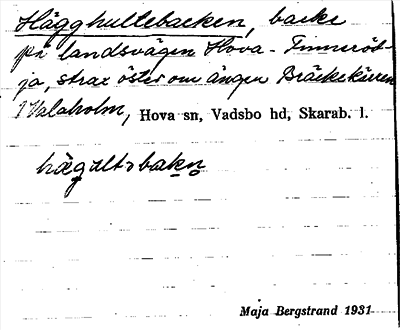 Hägghultebacken, backe
på landsvägen Hova - Finneröd-
ja, strax öster om ängen Bräckekärren
i Valaholm, Hova sn, Vadsbo hd, Skarab. l.
hägultabakn
Maja Bergstrand 1931